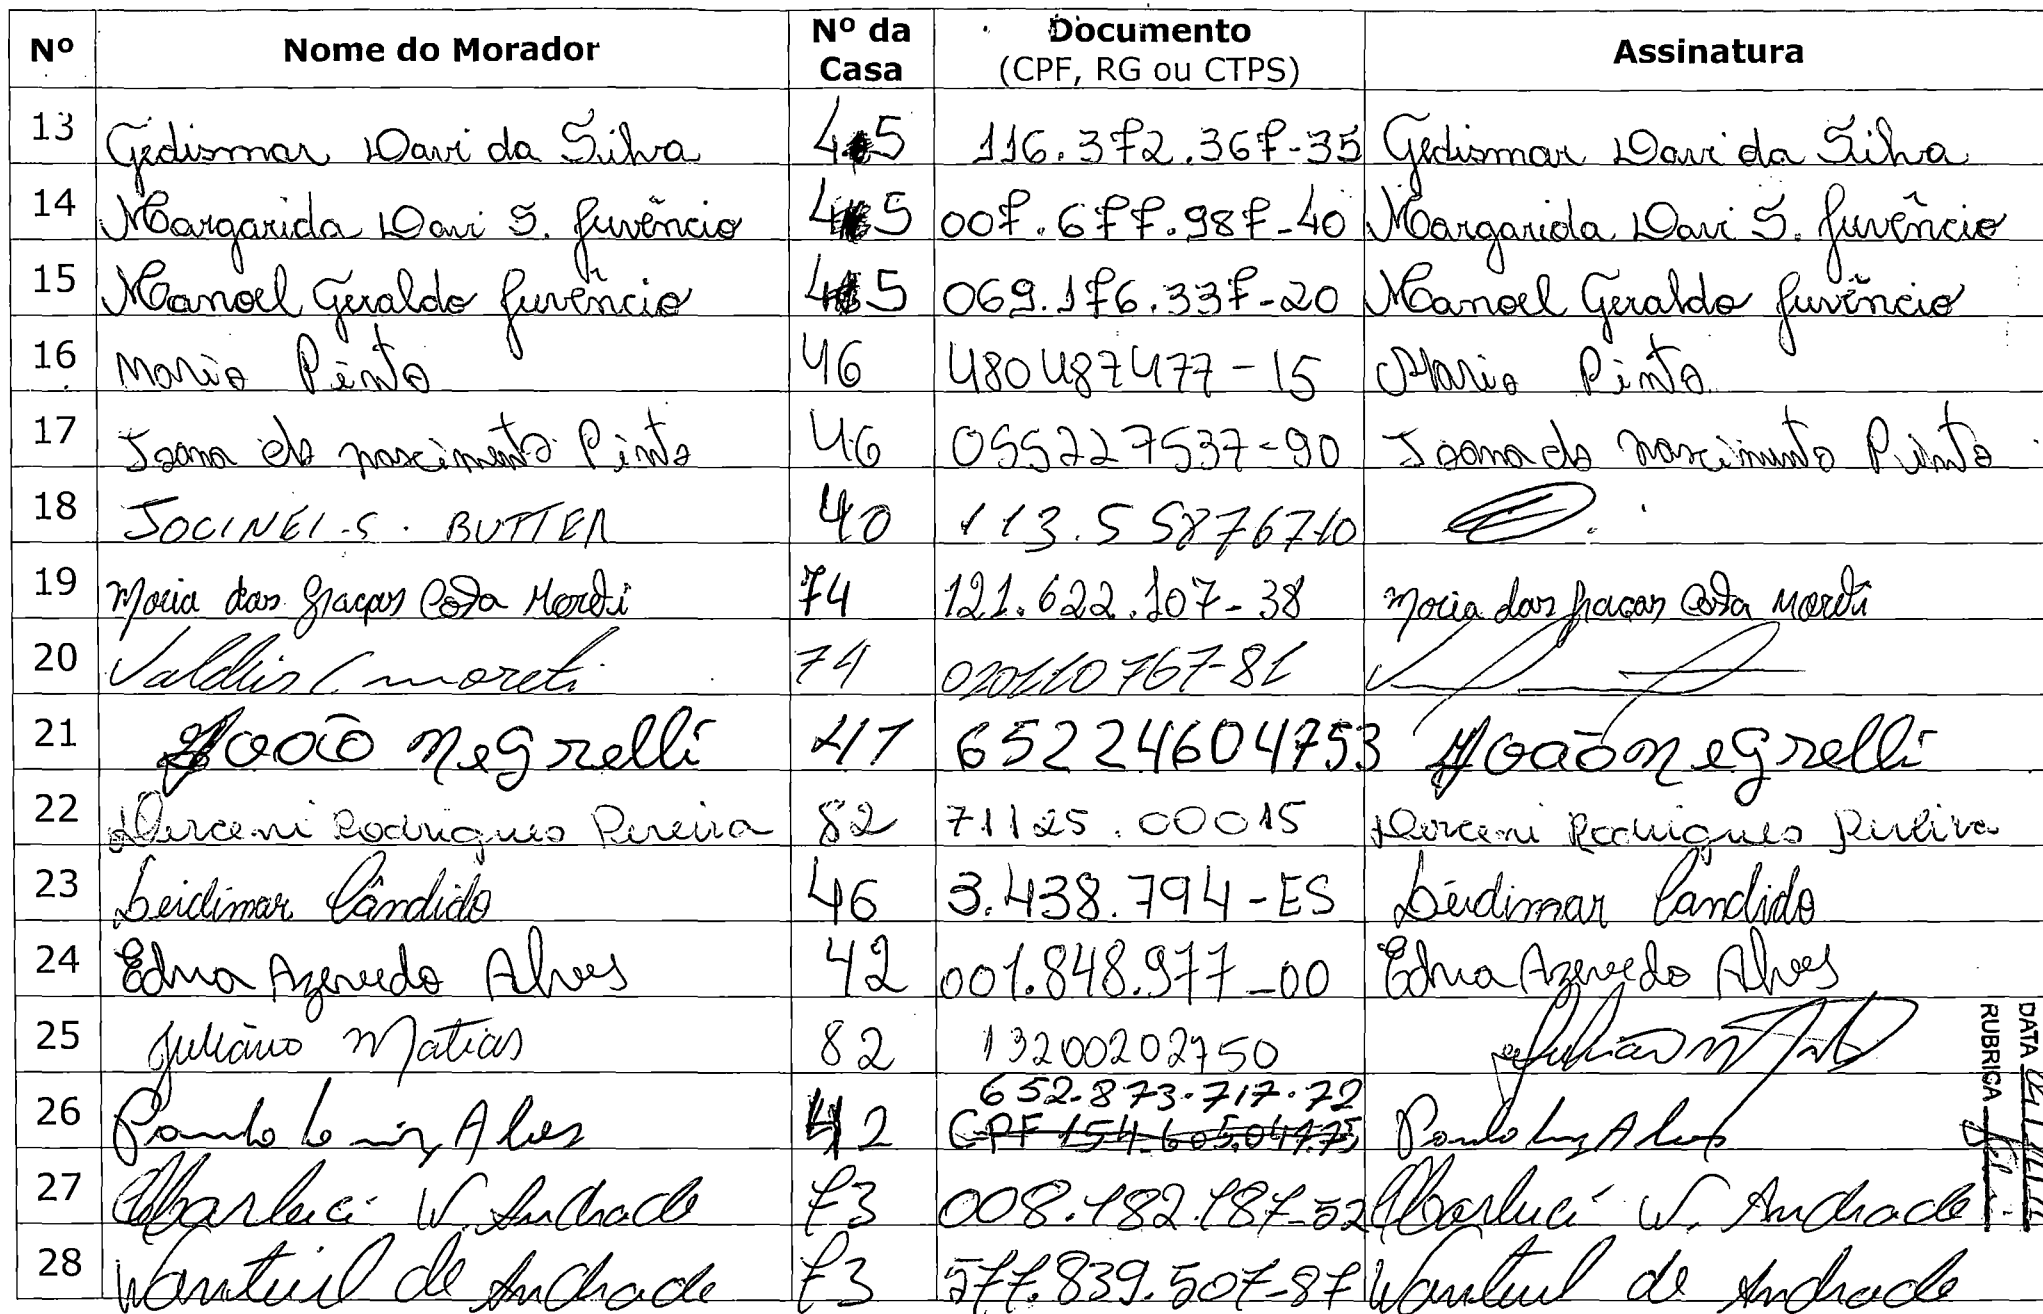 Nº Nome do Morador Nº da Casa Documento (CPF, RG ou CTPS) Assinatura
13 Gedismar Davi da Silva 45 116.372.367-35 Gedismar Davi da Silva
14 Margarida Davi S. Juvêncio 45 007.677.987-40 Margarida Davi S. Juvêncio
15 Manoel Geraldo Juvêncio 45 069.176.337-20 Manoel Geraldo Juvêncio
16 Mario Pinto 46 480487477-15 Mario Pinto
17 Joana do nascimento Pinto 46 055227537-90 Joana do nascimento Pinto
18 JOCINEI-S. BUTTER 40 113.558767-10
19 Maria das Graças Costa Moreti 74 121.622.107-38 Maria das graças Costa Moreti
20 Moreti 74 767-81
21 João Negrelli 41 65224604753 João Negrelli
22 Derceni Rodrigues Pereira 82 71125.00015 Derceni Rodrigues Pereira
23 Leidimar Cândido 46 3.438.794-ES Leidimar Cândido
24 Edna Azevedo Alves 42 001.848.977-00 Edna Azevedo Alves
25 Juliano Matias 82 13200202750
652.873.717.72
26 Paulo Luiz Alves 42 CPF Paulo Luiz Alves
27 Marluci W. Andrade 73 008.182.187-52 Marluci W. Andrade
28 Wantuil de Andrade 73 577.839.507-87 Wantuil de Andrade
DATA
RUBRICA